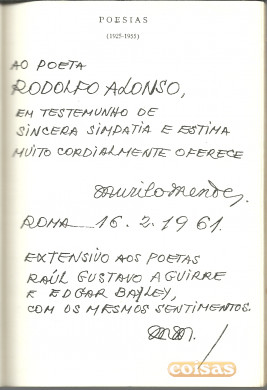 POESIAS
(1925-1955)
AO POETA
RODOLFO ALONSO,
EM TESTEMUNHO DE
SINCERA SIMPATIA E ESTIMA
MUITO CORDIALMENTE OFERECE
Murilo Mendes,
ROMA 16.2.1961.
EXTENSIVO AOS POETAS
RAÚL GUSTAVO AGUIRRE
E EDGAR BAILEY,
COM OS MESMOS SENTIMENTOS.
MM.
coisas